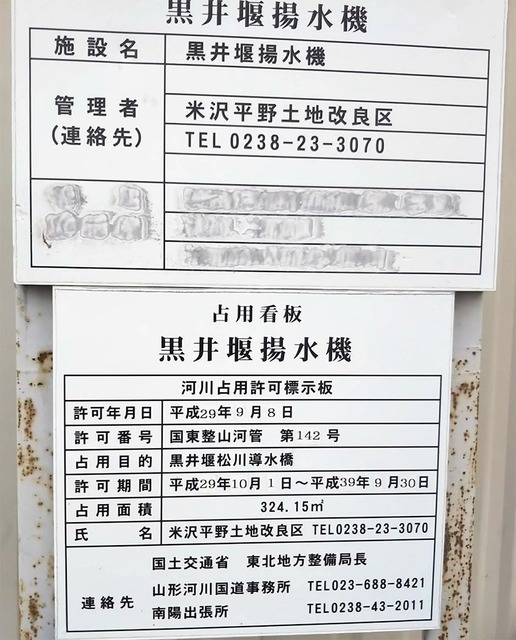 黒井堰揚水機
施設名 黒井堰揚水機
管理者
(連絡先)
米沢平野土地改良区
TEL 0238-23-3070
占用看板
黒井堰揚水機
河川占用許可標示板
許可年月日 平成29年9月8日
許可番号 国東整山河管 第142号
占用目的 黒井堰松川導水橋
許可期間 平成29年10月1日～平成39年9月30日
占用面積 324.15㎡
氏名 米沢平野土地改良区 TEL0238-23-3070
連絡先
国土交通省 東北地方整備局長
山形河川国道事務所 TEL023-688-8421
南陽出張所 TEL0238-43-2011